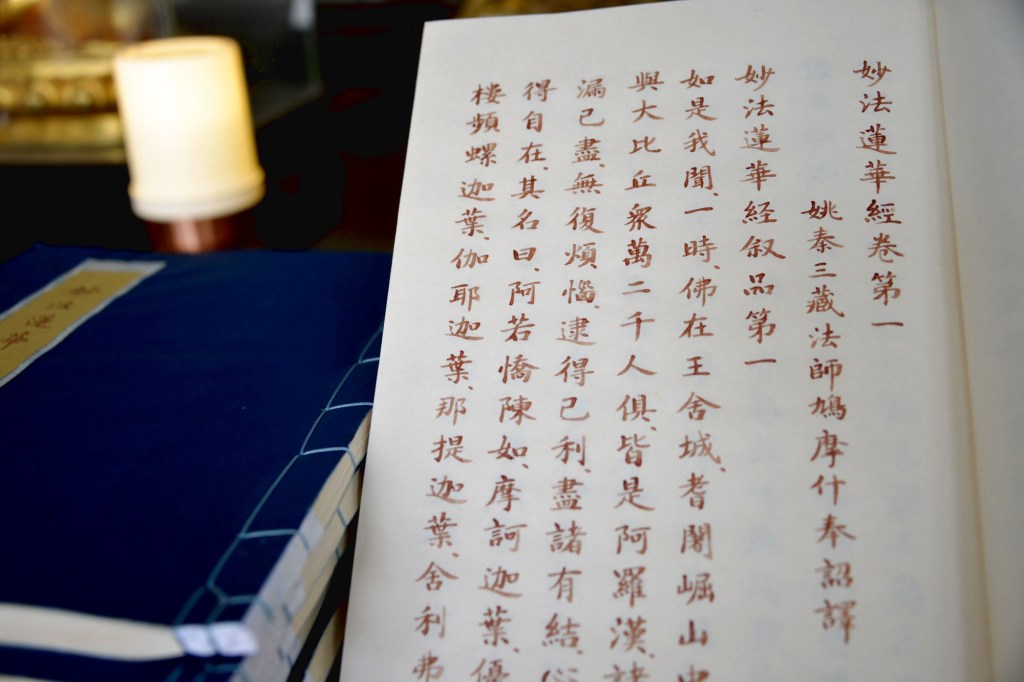 妙法蓮華經卷第一
姚秦三藏法師鳩摩什奉詔譯
妙法蓮華経叙品第一
如是我聞、一時、佛在王舍城、耆闍崛山中
與大比丘衆萬二千人俱、皆是阿羅漢、諸
漏已盡、無復煩惱、逮得己利、盡諸有結、心
得自在、其名曰、阿若憍陳如、摩訶迦葉、優
樓頻螺迦葉、伽耶迦葉、那提迦葉、舍利弗